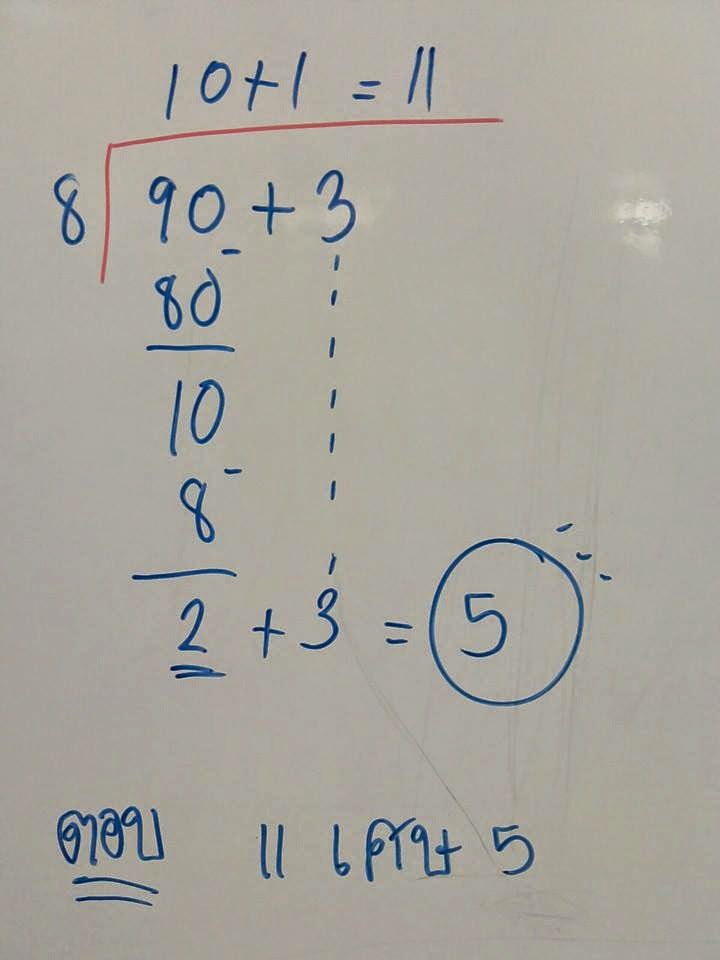 10+1 = 11
8 90 + 3
80 -
10
8 -
2 + 3 = 5
ตอบ 11 เศษ 5